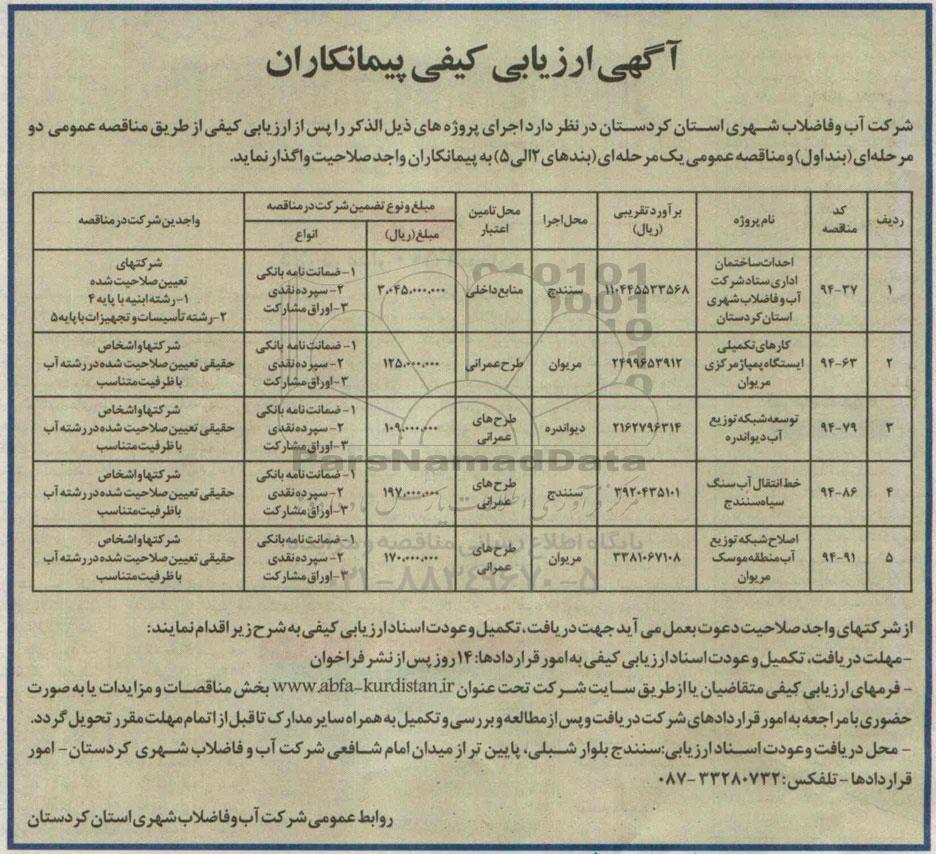 آگهی ارزیابی کیفی پیمانکاران
شرکت آب و فاضلاب شهری استان کردستان در نظر دارد اجرای پروژه های ذیل الذکر را پس از ارزیابی کیفی از طریق مناقصه عمومی دو
مرحله‌ای (بند اول) و مناقصه عمومی یک مرحله‌ای (بندهای ۲ الی ۵) به پیمانکاران واجد صلاحیت واگذار نماید.
ردیف کد مناقصه نام پروژه برآورد تقریبی (ریال) محل اجرا محل تامین اعتبار مبلغ و نوع تضمین شرکت در مناقصه واجدین شرکت در مناقصه
مبلغ (ریال) انواع
۱ ۹۴-۳۷ احداث ساختمان اداری ستاد شرکت آب و فاضلاب شهری استان کردستان ۱۱۰۴۴۵۵۳۳۵۶۸ سنندج منابع داخلی ۳,۰۴۵,۰۰۰,۰۰۰ ۱- ضمانت نامه بانکی ۲- سپرده نقدی ۳- اوراق مشارکت شرکتهای تعیین صلاحیت شده ۱- رشته ابنیه با پایه ۴ ۲- رشته تأسیسات و تجهیزات با پایه ۵
۲ ۹۴-۶۳ کارهای تکمیلی ایستگاه پمپاژ مرکزی مریوان ۲۴۹۹۶۵۳۹۱۲ مریوان طرح عمرانی ۱۲۵,۰۰۰,۰۰۰ ۱- ضمانت نامه بانکی ۲- سپرده نقدی ۳- اوراق مشارکت شرکتها و اشخاص حقیقی تعیین صلاحیت شده در رشته آب با ظرفیت متناسب
۳ ۹۴-۷۹ توسعه شبکه توزیع آب دیواندره ۲۱۶۲۷۹۶۳۱۴ دیواندره طرح های عمرانی ۱۰۹,۰۰۰,۰۰۰ ۱- ضمانت نامه بانکی ۲- سپرده نقدی ۳- اوراق مشارکت شرکتها و اشخاص حقیقی تعیین صلاحیت شده در رشته آب با ظرفیت متناسب
۴ ۹۴-۸۶ خط انتقال آب سنگ سیاه سنندج ۳۹۲۰۴۳۵۱۰۱ سنندج طرح های عمرانی ۱۹۷,۰۰۰,۰۰۰ ۱- ضمانت نامه بانکی ۲- سپرده نقدی ۳- اوراق مشارکت شرکتها و اشخاص حقیقی تعیین صلاحیت شده در رشته آب با ظرفیت متناسب
۵ ۹۴-۹۱ اصلاح شبکه توزیع آب منطقه موسک مریوان ۳۳۸۱۰۶۷۱۰۸ مریوان طرح های عمرانی ۱۷۰,۰۰۰,۰۰۰ ۱- ضمانت نامه بانکی ۲- سپرده نقدی ۳- اوراق مشارکت شرکتها و اشخاص حقیقی تعیین صلاحیت شده در رشته آب با ظرفیت متناسب
ParsNamadData
پایگاه اطلاع رسانی مناقصه و مزایده
۰۲۱-۸۸۳۴۹۶۷۰-۵
از شرکتهای واجد صلاحیت دعوت بعمل می آید جهت دریافت، تکمیل و عودت اسناد ارزیابی کیفی به شرح زیر اقدام نمایند:
- مهلت دریافت، تکمیل و عودت اسناد ارزیابی کیفی به امور قراردادها: ۱۴ روز پس از نشر فراخوان
- فرمهای ارزیابی کیفی متقاضیان یا از طریق سایت شرکت تحت عنوان www.abfa-kurdistan.ir بخش مناقصات و مزایدات یا به صورت
حضوری با مراجعه به امور قراردادهای شرکت دریافت و پس از مطالعه و بررسی و تکمیل به همراه سایر مدارک تا قبل از اتمام مهلت مقرر تحویل گردد.
- محل دریافت و عودت اسناد ارزیابی: سنندج بلوار شبلی، پایین تر از میدان امام شافعی شرکت آب و فاضلاب شهری کردستان - امور
قراردادها - تلفکس: ۳۳۲۸۰۷۳۲-۰۸۷
روابط عمومی شرکت آب و فاضلاب شهری استان کردستان